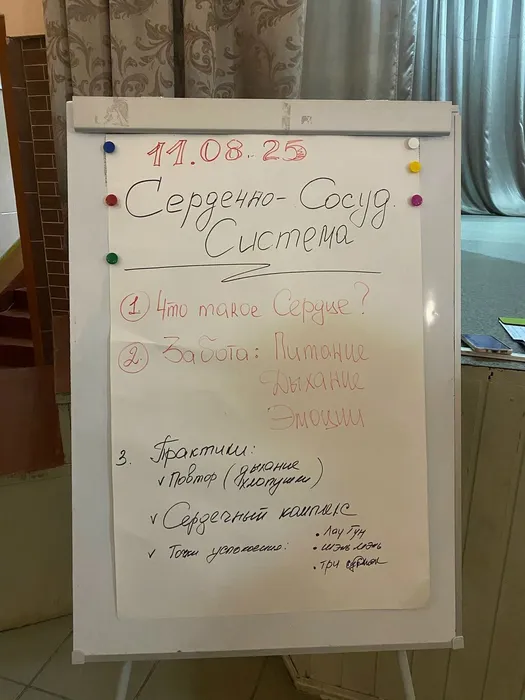 11.08.25
Сердечно-Сосуд.
Система
1 Что такое Сердце?
2. Забота: Питание
Дыхание
Эмоции
3. Практики:
✓ Повтор (дыхание
хлопушки)
✓ Сердечный комплекс
✓ Точки успокоения: • Лау Гун
• шэнь мэнь
• три